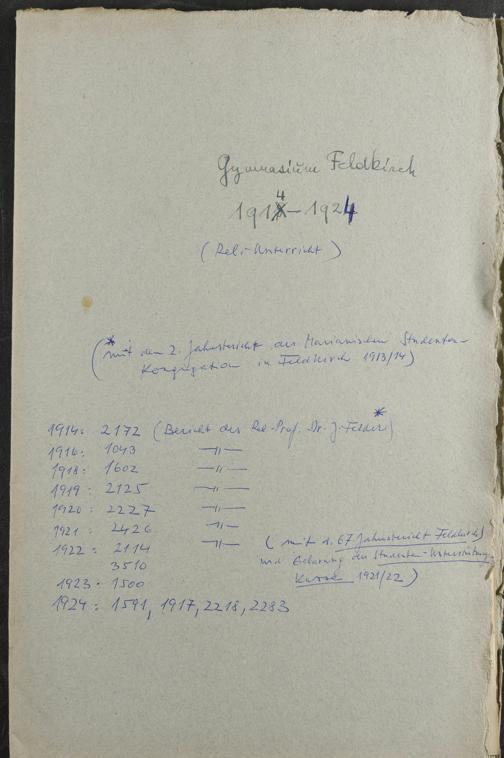 Gymnasium Feldkirch
1914-1924
(Reli-Unterricht)
(* mit dem 2. Jahresbericht der Marianischen Studenten-
Kongregation in Feldkirch 1913/14)
1914: 2172 (Bericht des Rel-Prof. Dr. J. Felder*)
1916: 1043 —"—
1918: 1602 —"—
1919: 2125 —"—
1920: 2227 —"—
1921: 2426 —"—
1922: 2114 —"— (mit d. 67. Jahresbericht Feldkirch)
3510 und Gebarung der Studenten-Unterstützungs
Kasse 1921/22)
1923: 1500
1924: 1591, 1917, 2218, 2283